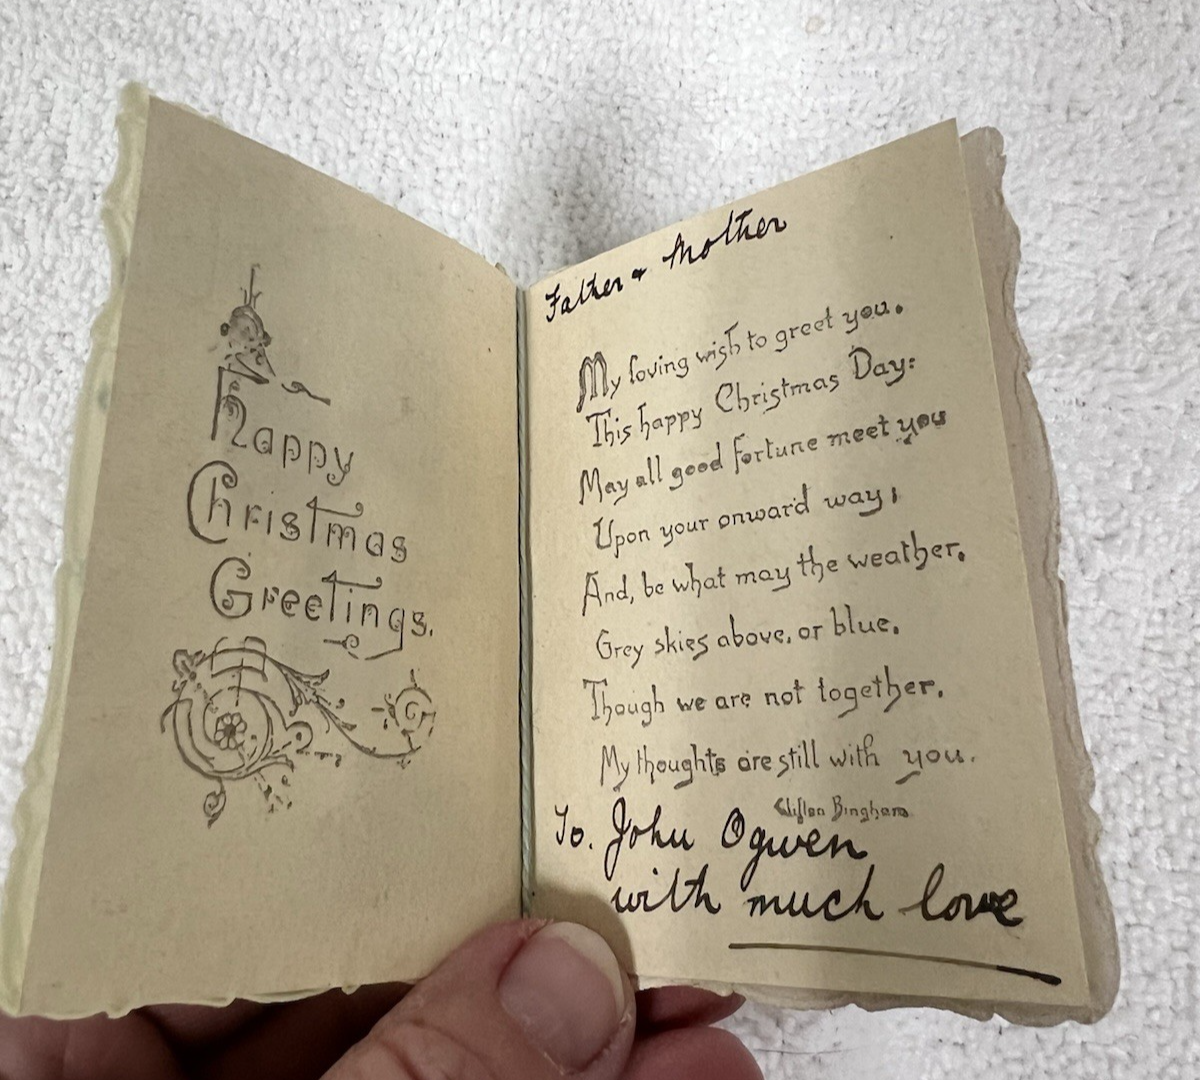 Happy
Christmas
Greetings.
Father & Mother
My loving wish to greet you.
This happy Christmas Day:
May all good fortune meet you
Upon your onward way;
And, be what may the weather.
Grey skies above, or blue.
Though we are not together.
My thoughts are still with you.
Clifton Bingham
To. John Ogwen
with much love